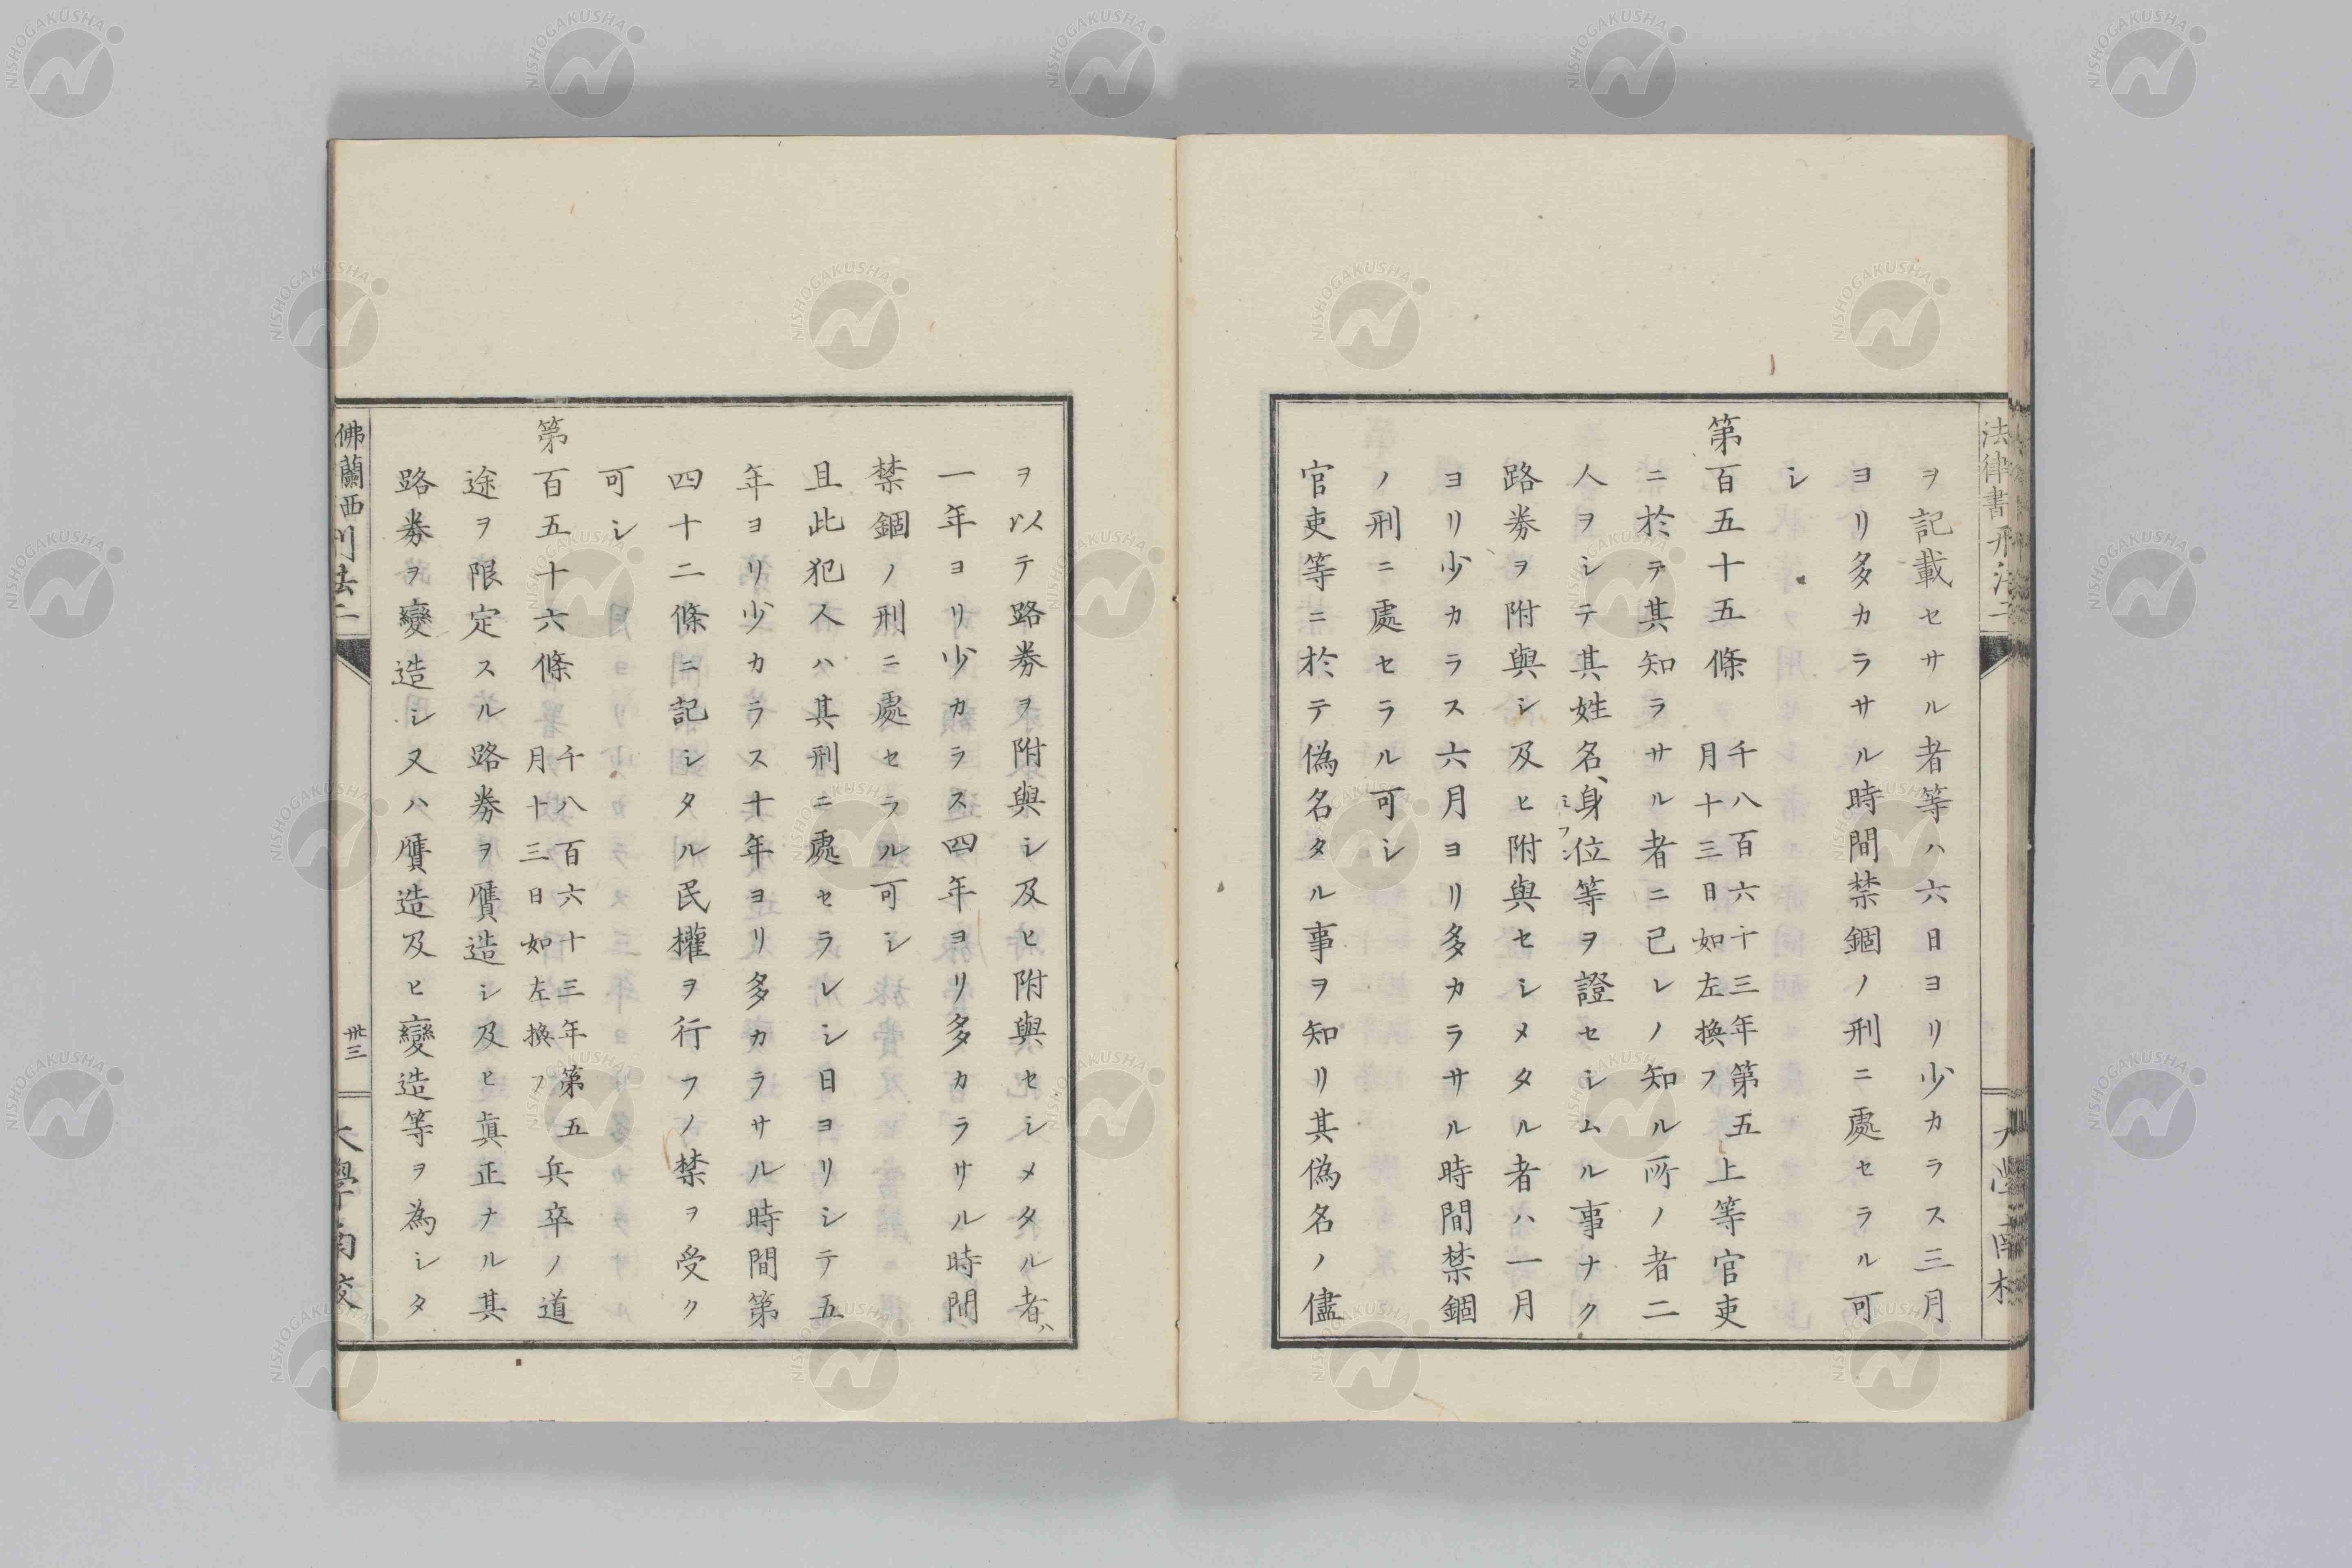 法律書刑法二
ヲ記載セサル者等ハ六日ヨリ少カラス三月
ヨリ多カラサル時間禁錮ノ刑ニ處セラル可
シ
第百五十五條 千八百六十三年第五
月十三日如左換フ 上等官吏
ニ於テ其知ラサル者ニ已レノ知ル所ノ者二
人ヲシテ其姓名、身位ミブン等ヲ證セシムル事ナク
路券ヲ附與シ及ヒ附與セシメタル者ハ一月
ヨリ少カラス六月ヨリ多カラサル時間禁錮
ノ刑ニ處セラル可シ
官吏等ニ於テ偽名タル事ヲ知リ其偽名ノ儘
ヲ以テ路券ヲ附與シ及ヒ附與セシメタル者ハ
一年ヨリ少カラス四年ヨリ多カラサル時間
禁錮ノ刑ニ處セラル可シ
且此犯人ハ其刑ニ處セラレシ日ヨリシテ五
年ヨリ少カラス十年ヨリ多カラサル時間第
四十二條ニ記シタル民權ヲ行フノ禁ヲ受ク
可シ
第百五十六條 千八百六十三年第五
月十三日如左換フ 兵卒ノ道
途ヲ限定スル路券ヲ贋造シ及ヒ眞正ナル其
路券ヲ變造シ又ハ贋造及ヒ變造等ヲ為シタ
佛蘭西刑法二
卅三
大學南校
NISHOGAKUSHA